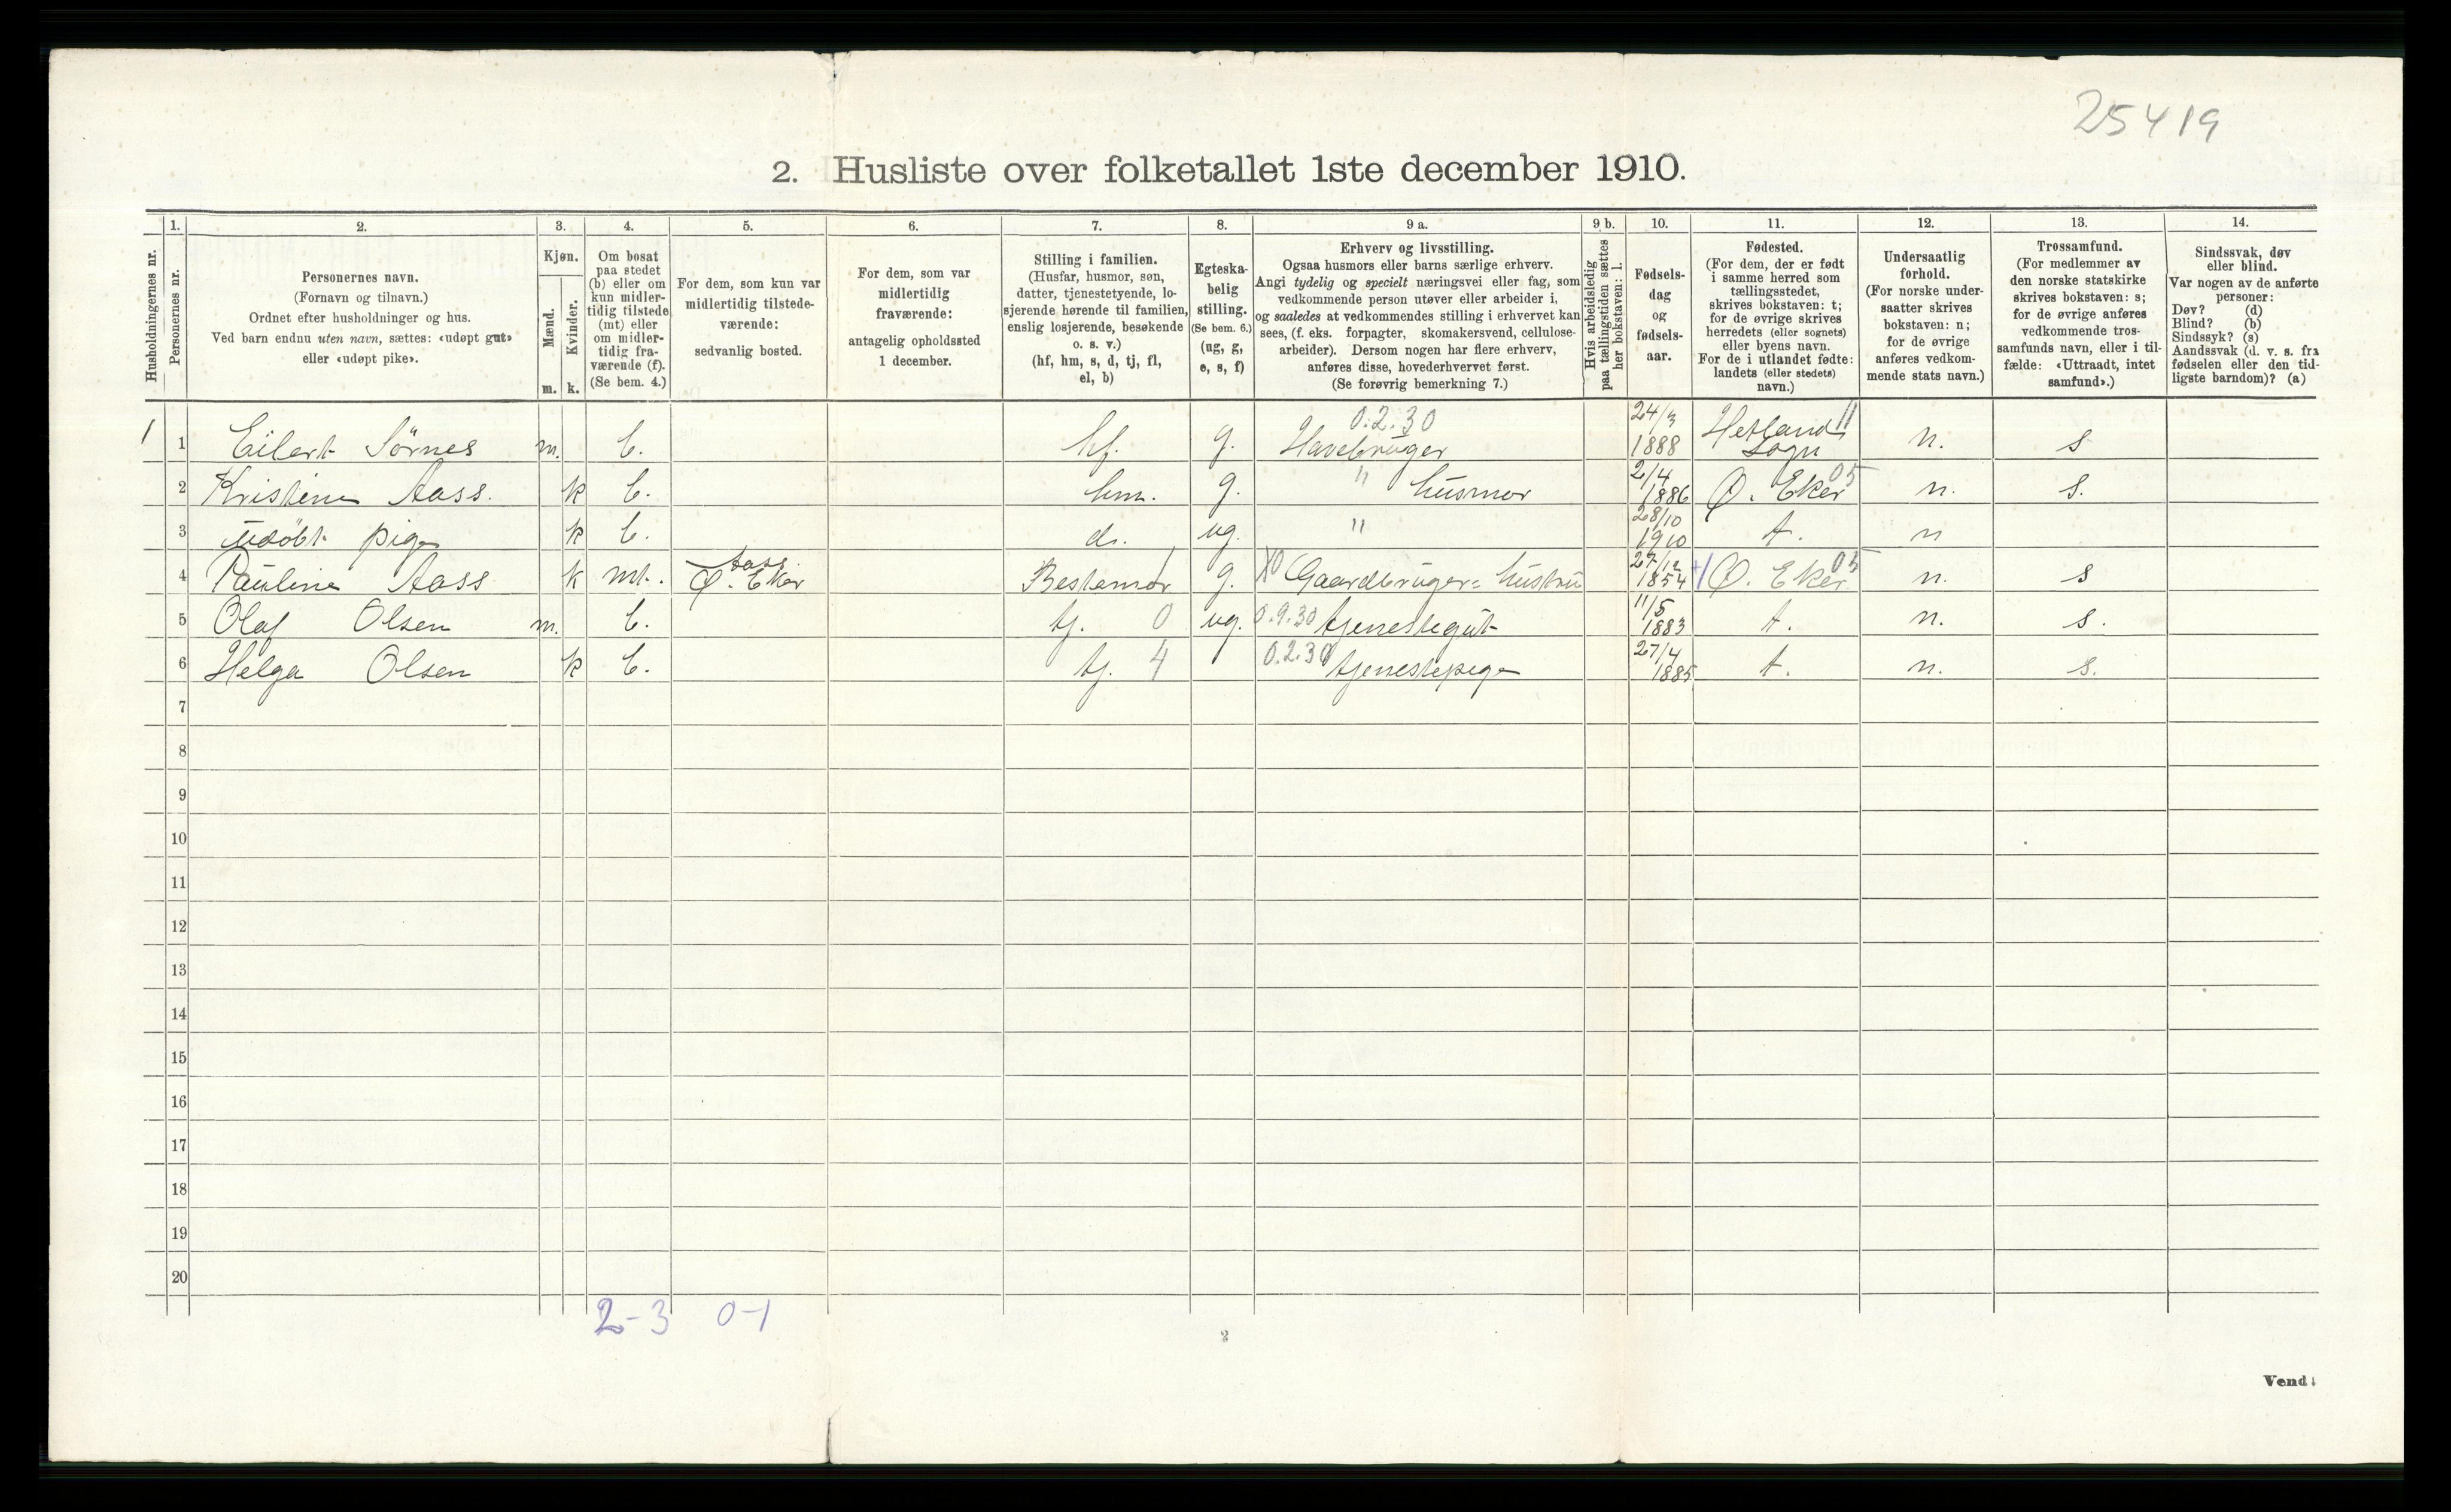 25419
2. Husliste over folketallet 1ste december 1910.
Husholdningernes nr.
1.
Personernes nr.
2.
Personernes navn.
(Fornavn og tilnavn.)
Ordnet efter husholdninger og hus.
Ved barn endnu uten navn, sættes: «udøpt gut»
eller «udøpt pike».
3.
Kjøn.
Mænd.
m.
Kvinder.
k.
4.
Om bosat
paa stedet
(b) eller om
kun midler-
tidig tilstede
(mt) eller
om midler-
tidig fra-
værende (f).
(Se bem. 4.)
5.
For dem, som kun var
midlertidig tilstede-
værende:
sedvanlig bosted.
6.
For dem, som var
midlertidig
fraværende:
antagelig opholdssted
1 december.
7.
Stilling i familien.
(Husfar, husmor, søn,
datter, tjenestetyende, lo-
sjerende hørende til familien,
enslig losjerende, besøkende
o. s. v.)
(hf, hm, s, d, tj, fl,
el, b)
8.
Egteska-
belig
stilling.
(Se bem. 6.)
(ug, g,
e, s, f)
9 a.
Erhverv og livsstilling.
Ogsaa husmors eller barns særlige erhverv.
Angi tydelig og specielt næringsvei eller fag, som
vedkommende person utøver eller arbeider i,
og saaledes at vedkommendes stilling i erhvervet kan
sees, (f. eks. forpagter, skomakersvend, cellulose-
arbeider). Dersom nogen har flere erhverv,
anføres disse, hovederhvervet først.
(Se forøvrig bemerkning 7.)
9 b.
Hvis arbeidsledig
paa tællingstiden sættes
her bokstaven: l.
10.
Fødsels-
dag
og
fødsels-
aar.
11.
Fødested.
(For dem, der er født
i samme herred som
tællingsstedet,
skrives bokstaven: t;
for de øvrige skrives
herredets (eller sognets)
eller byens navn.
For de i utlandet fødte:
landets (eller stedets)
navn.)
12.
Undersaatlig
forhold.
(For norske under-
saatter skrives
bokstaven: n;
for de øvrige
anføres vedkom-
mende stats navn.)
13.
Trossamfund.
(For medlemmer av
den norske statskirke
skrives bokstaven: s;
for de øvrige anføres
vedkommende tros-
samfunds navn, eller i til-
fælde: «Uttraadt, intet
samfund».)
14.
Sindssvak, døv
eller blind.
Var nogen av de anførte
personer:
Døv? (d)
Blind? (b)
Sindssyk? (s)
Aandssvak (d. v. s. fra
fødselen eller den tid-
ligste barndom)? (a)
1 1 Eilert Sörnes m. b. hf. g. 0.2.30 Havebruger 24/3 1888 Hetland 11 Sogn n. s
2 Kristine Aass. k b. hm. g. " husmor 2/4 1886 Ø. Eker 05 n. s.
3 Udöbt pige k b. d. ug. " 28/10 1910 t. n
4 Pauline Aass k mt. Aass Ø. Eker Bestemor g. X0 Gaardbruger= hustru 27/12 1854 Ø. Eker 05 n. s
5 Olaf Olsen m. b. tj. 0 ug. 0.9.30 tjenestegut 11/5 1883 t. n. s.
6 Helga Olsen k b. tj. 4 0.2.30 tjenestepige 27/4 1885 t. n. s.
7
8
9
10
11
12
13
14
15
16
17
18
19
20
2-3 0-1
2
Vend!